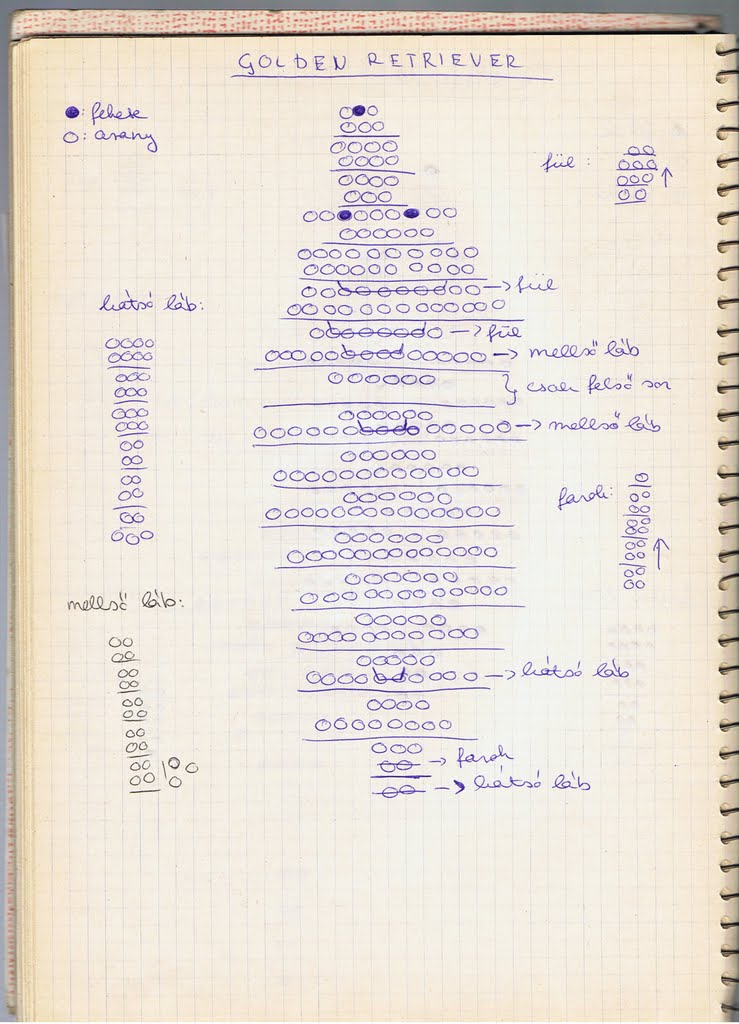 GOLDEN RETRIEVER
: fekete
: arany
fül :
hátsó láb:
→ fül
→ fül
→ mellső láb
} csak felső sor
→ mellső láb
farok:
mellső láb:
→ hátsó láb
→ farok
→ hátsó láb